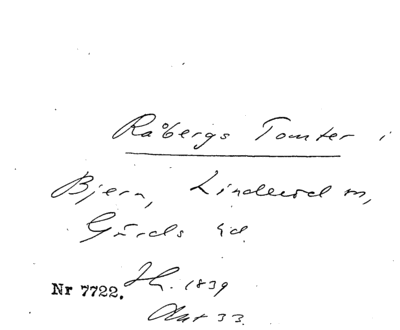 Råbergs Tomter i
Bjern, Linderød m,
Gärds hd.
Nr 7722. 1839
Akt 33.